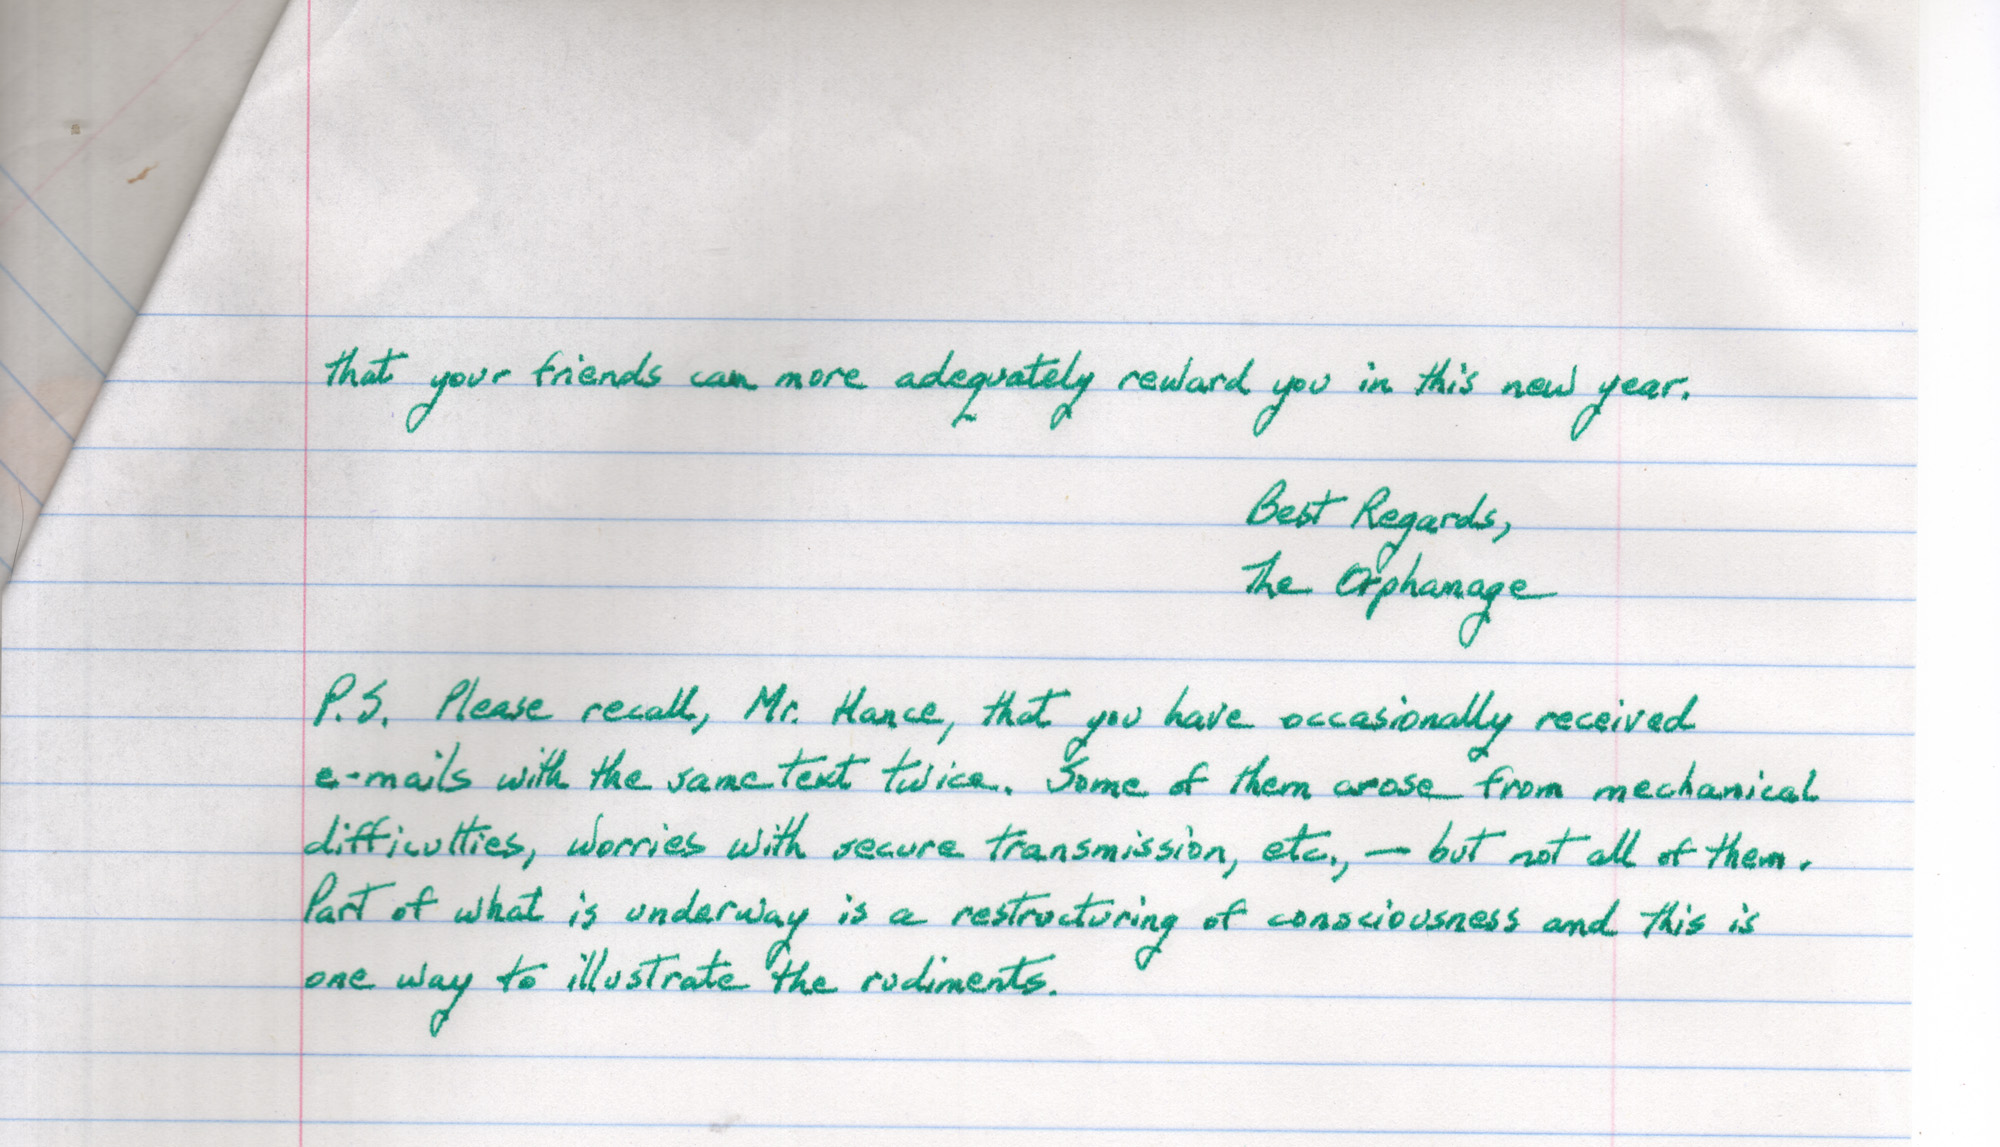 that your friends can more adequately reward you in this new year.
Best Regards,
The Orphanage
P.S. Please recall, Mr. Hance, that you have occasionally received
e-mails with the same text twice. Some of them arose from mechanical
difficulties, worries with secure transmission, etc., — but not all of them.
Part of what is underway is a restructuring of consciousness and this is
one way to illustrate the rudiments.